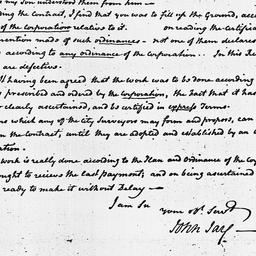 my Son understood them from him —
ding the Contract, I find that you was to fill up the Ground, acco
of the corporation relative to it. on reading the certifica
mention made of such ordinances, but one of them declares
according to any ordinance of the corporation. In this Re
are defective.
having been agreed that the work was to be done according
prescribed and ordered by the Corporation, the Fact that it has
clearly ascertained, and be certified in express Terms.
ns which any of the city Surveyors may form and propose, can
the Contract, until they are adopted and established by an
ation.
work is really done according to the Plan and Ordinance of the co
ought to recieve the last payment; and on being ascertained
ready to make it without Delay —
I am Sir
your ob. Servt
John Jay